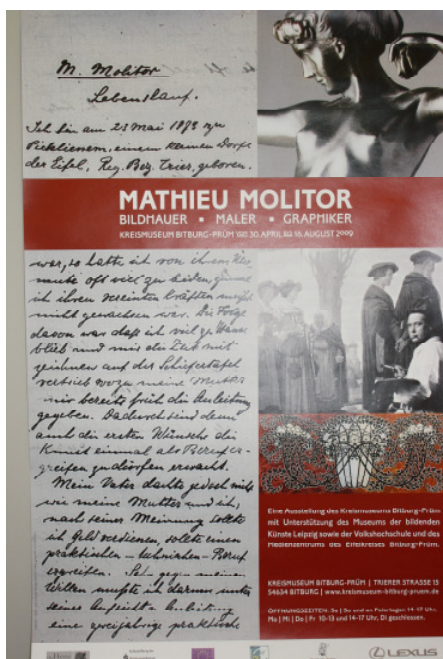 M. Molitor
Lebenslauf.
Ich bin am 23 Mai 1873 zu
Pickliessem, einem kleinen Dorfe
der Eifel, Reg. Bez. Trier, geboren.
MATHIEU MOLITOR
BILDHAUER ▪ MALER ▪ GRAPHIKER
KREISMUSEUM BITBURG-PRÜM VOM 30. APRIL BIS 16. AUGUST 2009
war, so hatte ich von ihrem
oft viel zu leiden, zumal
ich ihren vereinten Kräften
nicht gewachsen war. Die Folge
davon war daß ich viel zu Hause
blieb und mir die Zeit mit
zeichnen auf der Schiefertafel
vertrieb wozu meine Mutter
mir bereits früh die Anleitung
gegeben. Dadurch sind denn
auch die ersten Wünsche die
Kunst einmal als Beruf er-
greifen zu dürfen erwacht.
Mein Vater dachte jedoch nicht
wie meine Mutter und ich,
nach seiner Meinung sollte
ich Geld verdienen, sollte einen
praktischen - technischen - Beruf
ergreifen. Sehr gegen meinen
Willen mußte ich darum unter
seiner Aufsicht u. Anleitung
eine zweijährige praktische
Eine Ausstellung des Kreismuseums Bitburg-Prüm
mit Unterstützung des Museums der bildenden
Künste Leipzig sowie der Volkshochschule und des
Medienzentrums des Eifelkreises Bitburg-Prüm.
KREISMUSEUM BITBURG-PRÜM | TRIERER STRASSE 15
54634 BITBURG | www.kreismuseum-bitburg-pruem.de
ÖFFNUNGSZEITEN: Sa | So und an Feiertagen 14-17 Uhr,
Mo | Mi | Do | Fr 10-13 und 14-17 Uhr, Di geschlossen.
LEXUS